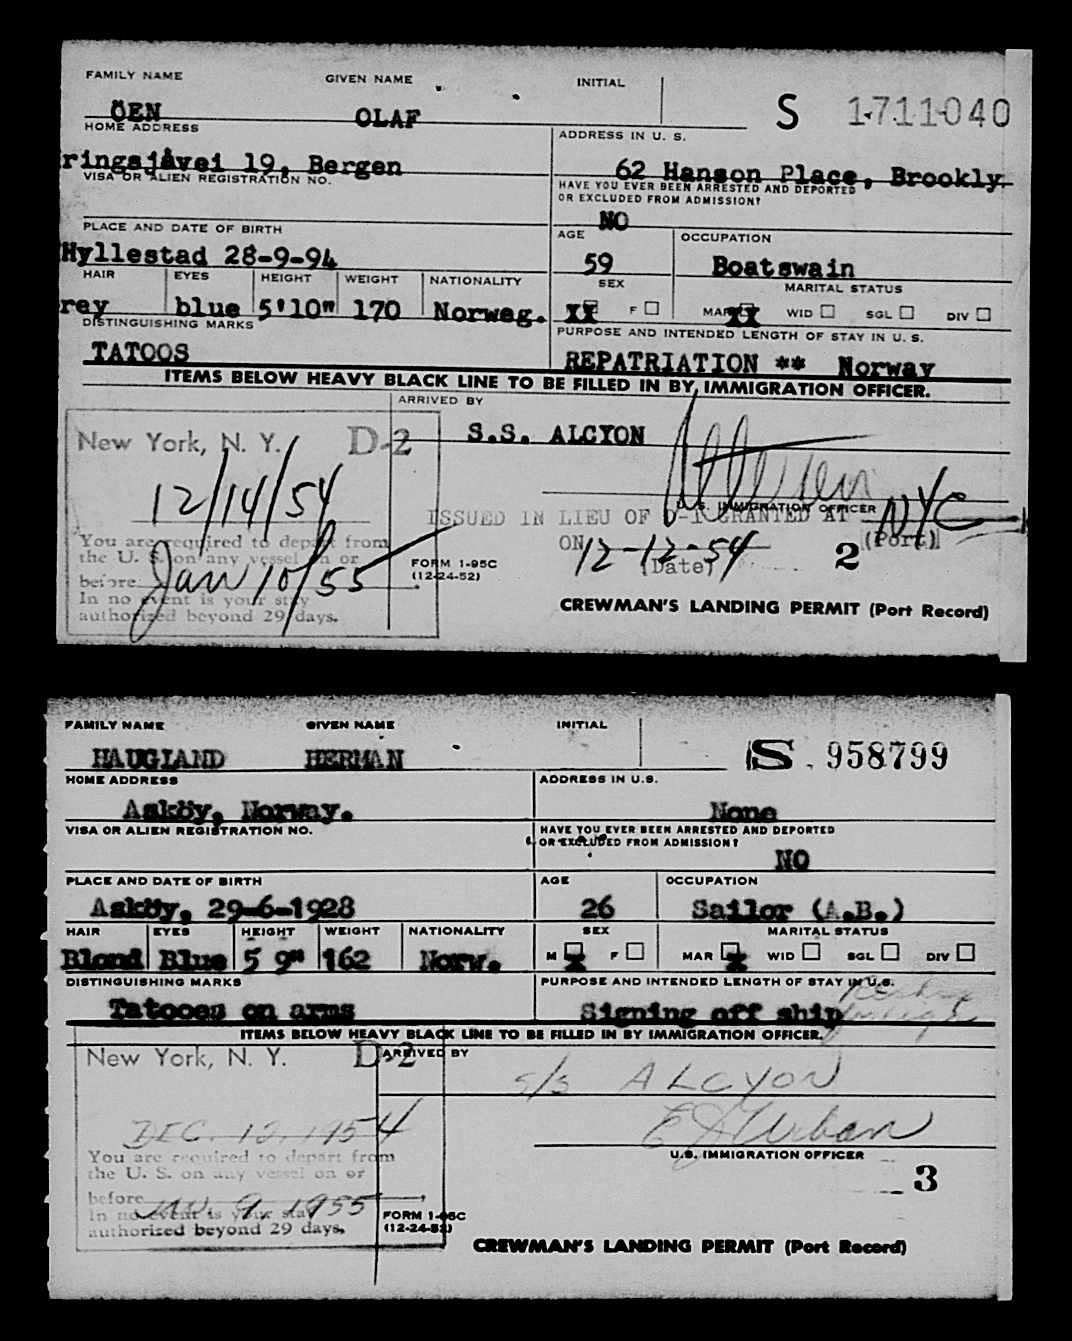 FAMILY NAME GIVEN NAME INITIAL
ÖEN OLAF S 1711040
HOME ADDRESS ADDRESS IN U. S.
ringsjåvei 19, Bergen 62 Hanson Place, Brookly
VISA OR ALIEN REGISTRATION NO. HAVE YOU EVER BEEN ARRESTED AND DEPORTED
OR EXCLUDED FROM ADMISSION?
NO
PLACE AND DATE OF BIRTH AGE OCCUPATION
Hyllestad 28-9-94 59 Boatswain
HAIR EYES HEIGHT WEIGHT NATIONALITY SEX MARITAL STATUS
rey blue 5'10" 170 Norweg. XX F MAR XX WID SGL DIV
DISTINGUISHING MARKS PURPOSE AND INTENDED LENGTH OF STAY IN U. S.
TATOOS REPATRIATION ** Norway
ITEMS BELOW HEAVY BLACK LINE TO BE FILLED IN BY IMMIGRATION OFFICER.
ARRIVED BY
New York, N. Y. D-2 S.S. ALCYON
12/14/54
U. S. IMMIGRATION OFFICER
ISSUED IN LIEU OF D-1 GRANTED AT NYC
You are required to depart from
the U. S. on any vessel on or
before Jan 10/55
In no event is your stay
authorized beyond 29 days.
ON 12-12-54 (Port)
(Date) 2
FORM 1-95C
(12-24-52)
CREWMAN'S LANDING PERMIT (Port Record)
FAMILY NAME GIVEN NAME INITIAL
HAUGLAND HERMAN S 958799
HOME ADDRESS ADDRESS IN U.S.
Asköy, Norway. None
VISA OR ALIEN REGISTRATION NO. HAVE YOU EVER BEEN ARRESTED AND DEPORTED
OR EXCLUDED FROM ADMISSION?
NO
PLACE AND DATE OF BIRTH AGE OCCUPATION
Asköy, 29-6-1928 26 Sailor (A.B.)
HAIR EYES HEIGHT WEIGHT NATIONALITY SEX MARITAL STATUS
Blond Blue 5 9" 162 Norw. M X F MAR X WID SGL DIV
DISTINGUISHING MARKS PURPOSE AND INTENDED LENGTH OF STAY IN U.S.
Tatooes on arms Signing off ship
ITEMS BELOW HEAVY BLACK LINE TO BE FILLED IN BY IMMIGRATION OFFICER.
New York, N. Y. D-2 ARRIVED BY
S/S ALCYON
DEC. 12, 1954 E J Urban
You are required to depart from
the U. S. on any vessel on or
before JAN. 9, 1955
In no event is your stay
authorized beyond 29 days.
U.S. IMMIGRATION OFFICER
3
FORM 1-95C
(12-24-52)
CREWMAN'S LANDING PERMIT (Port Record)